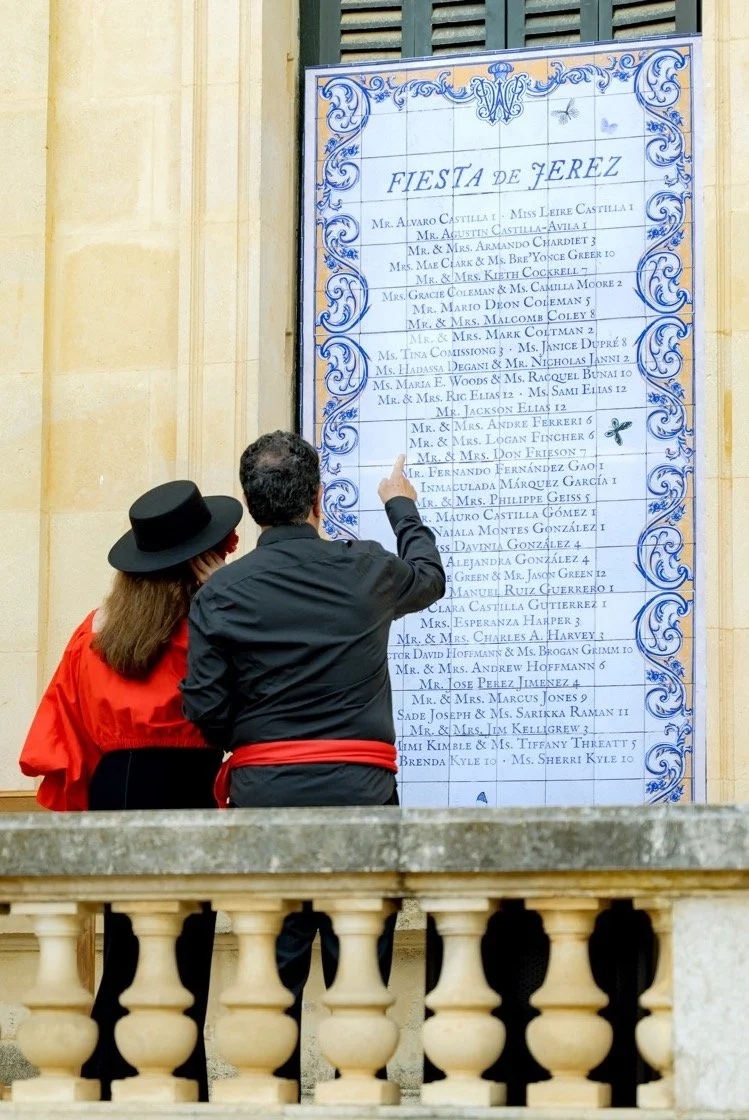 FIESTA DE JEREZ
MR. ALVARO CASTILLA 1 · MISS LEIRE CASTILLA 1
MR. AGUSTIN CASTILLA-AVILA 1
MR. & MRS. ARMANDO CHARDIET 3
MRS. MAE CLARK & MS. BRE'YONCE GREER 10
MR. & MRS. KIETH COCKRELL 7
MRS. GRACIE COLEMAN & MS. CAMILLA MOORE 2
MR. MARIO DEON COLEMAN 5
MR. & MRS. MALCOMB COLEY 8
MR. & MRS. MARK COLTMAN 2
MS. TINA COMISSIONG 3 · MS. JANICE DUPRÉ 8
MS. HADASSA DEGANI & MR. NICHOLAS JANNI 2
MS. MARIA E. WOODS & MS. RACQUEL BUNAI 10
MR. & MRS. RIC ELIAS 12 · MS. SAMI ELIAS 12
MR. JACKSON ELIAS 12
MR. & MRS. ANDRE FERRERI 6
MR. & MRS. LOGAN FINCHER 6
MR. & MRS. DON FRIESON 7
MR. FERNANDO FERNÁNDEZ GAO 1
INMACULADA MÁRQUEZ GARCÍA 1
MR. & MRS. PHILIPPE GEISS 5
MAURO CASTILLA GÓMEZ 1
NAIALA MONTES GONZÁLEZ 1
DAVINIA GONZÁLEZ 4
ALEJANDRA GONZÁLEZ 4
GREEN & MR. JASON GREEN 12
MANUEL RUIZ GUERRERO 1
CLARA CASTILLA GUTIERREZ 1
MRS. ESPERANZA HARPER 3
MR. & MRS. CHARLES A. HARVEY 3
DAVID HOFFMANN & MS. BROGAN GRIMM 10
MR. & MRS. ANDREW HOFFMANN 6
MR. JOSE PEREZ JIMENEZ 4
MR. & MRS. MARCUS JONES 9
SADE JOSEPH & MS. SARIKKA RAMAN 11
MR. & MRS. JIM KELLIGREW 3
KIMBLE & MS. TIFFANY THREATT 5
BRENDA KYLE 10 · MS. SHERRI KYLE 10